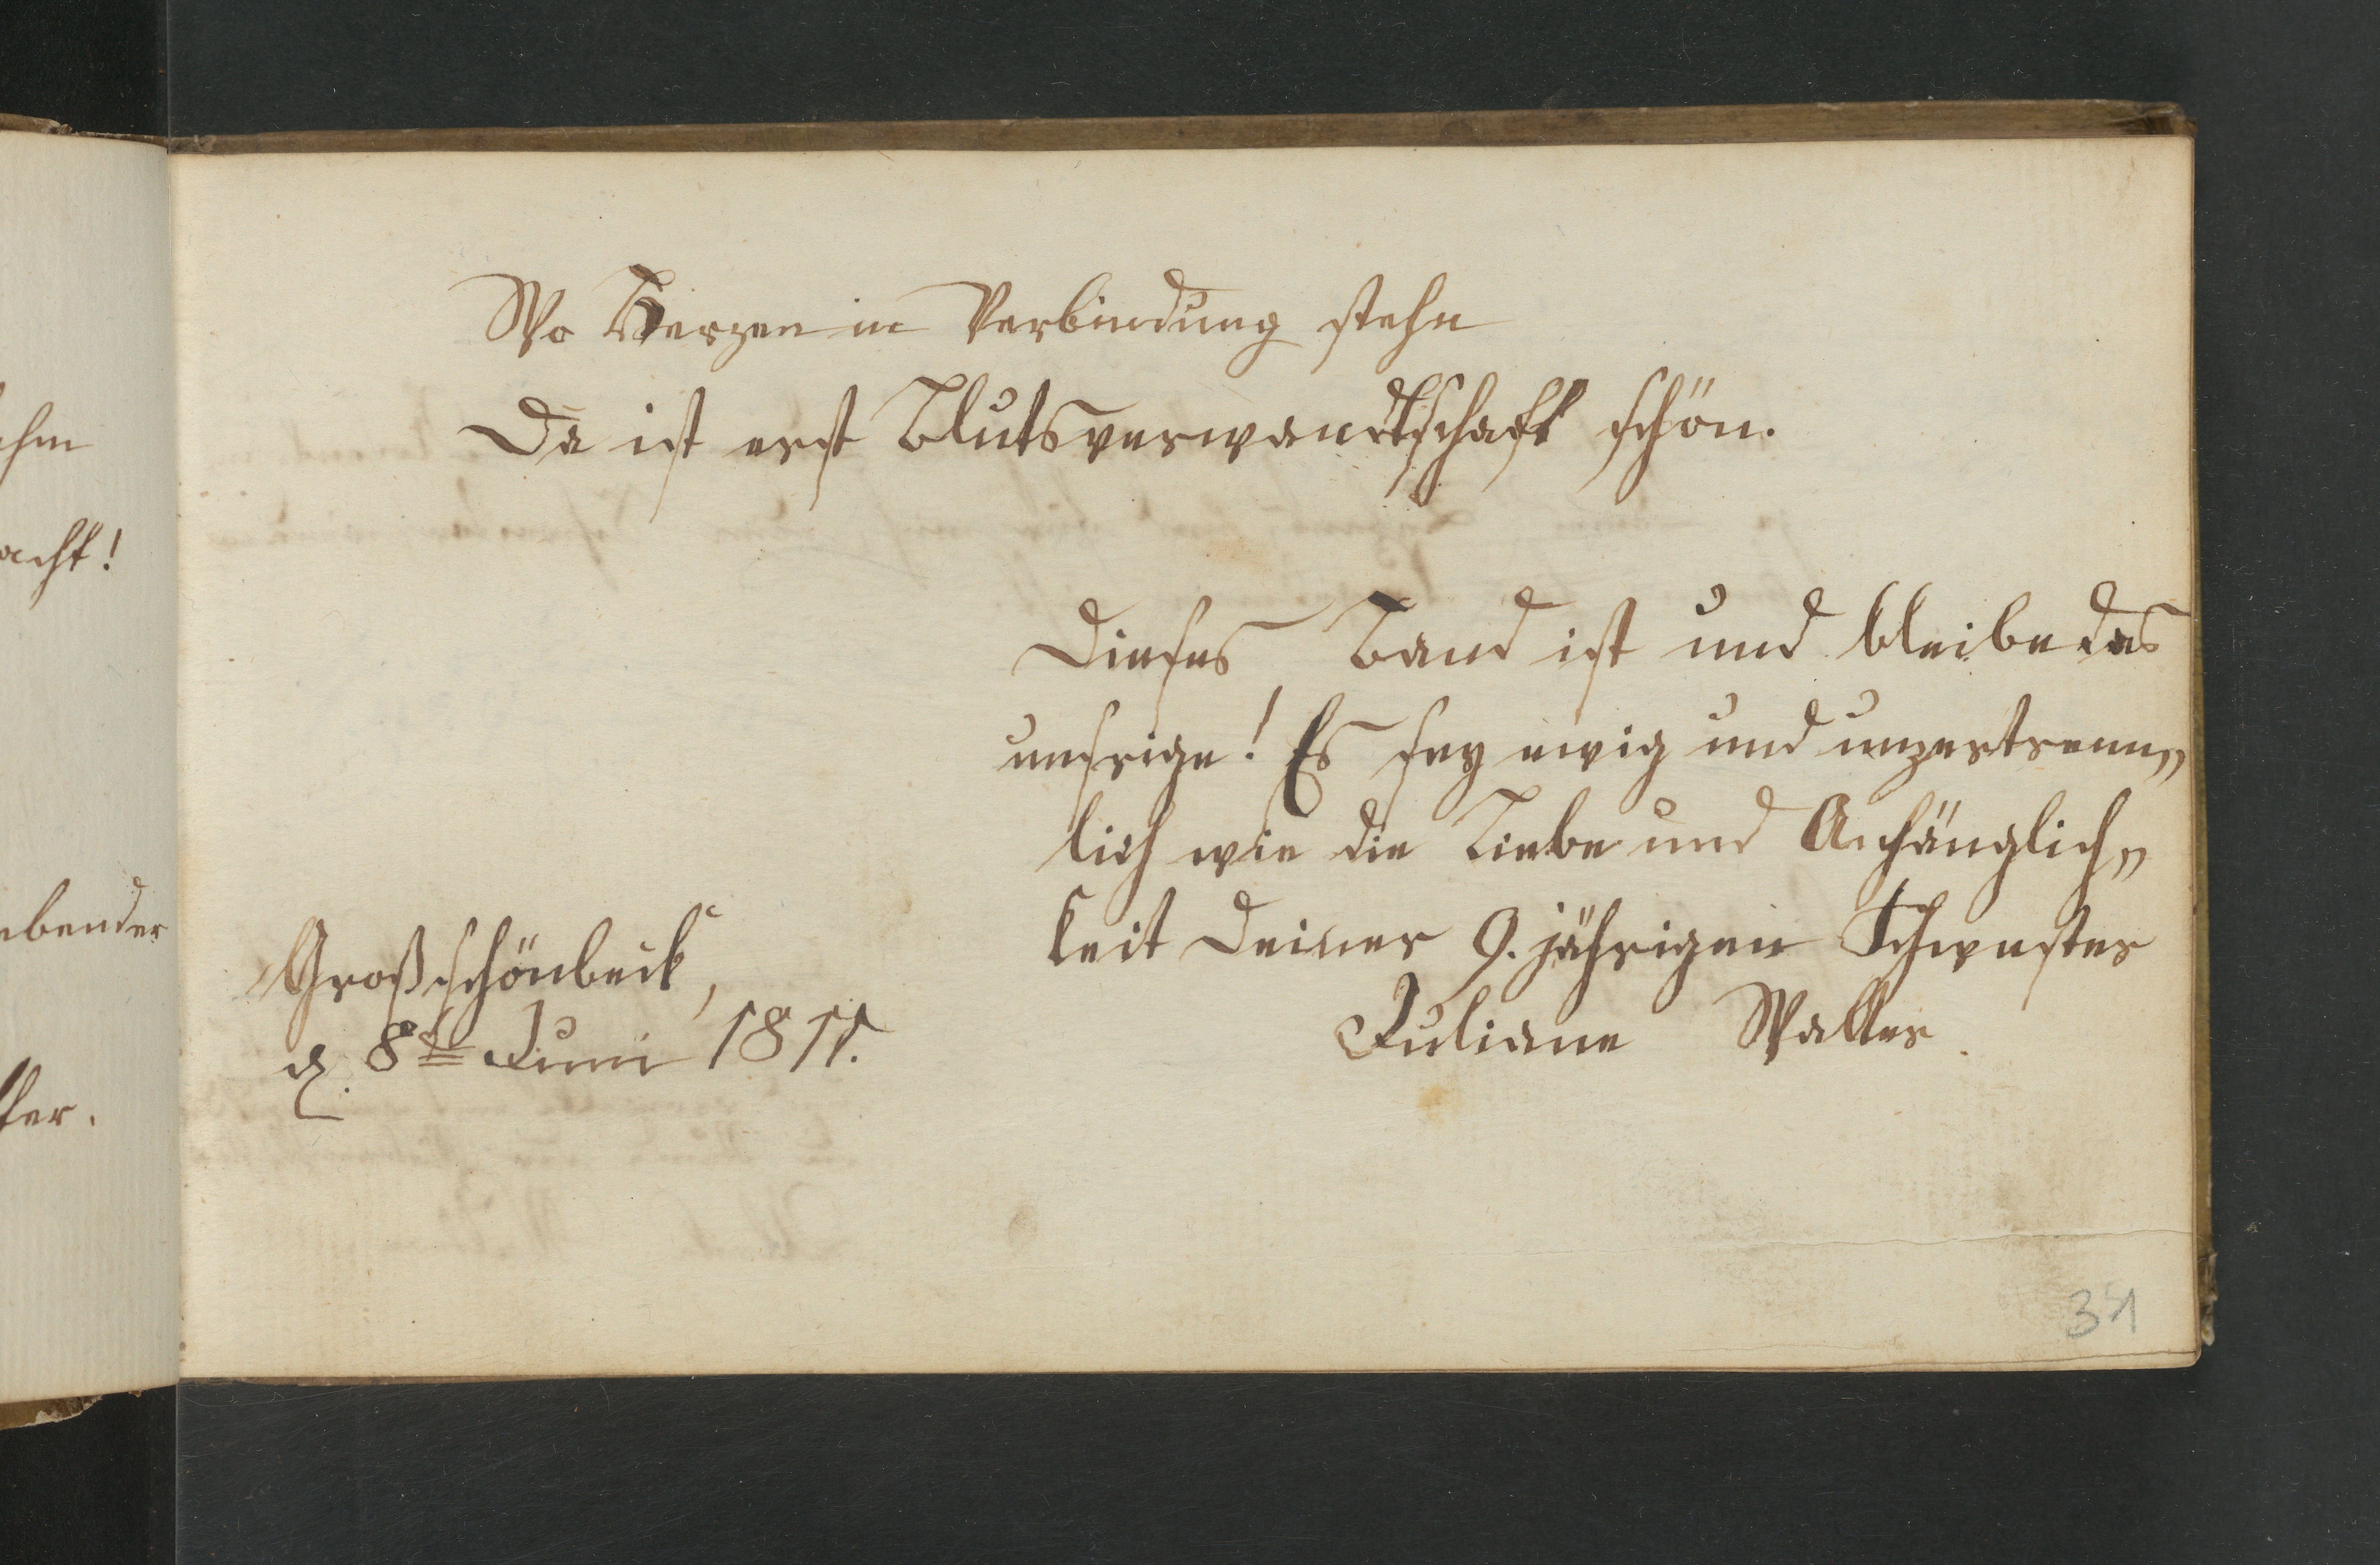 ehm
acht!
ebender
ter.
Wo Herzen in Verbindung stehn
Da ist erst Blutsverwandtschaft schön.
Dieses Band ist und bleibe das
unsrige! Es sey ewig und unzertrenn„
lich wie die Liebe und Anhänglich„
keit Deiner 9. jährigen Schwester
Juliane Walter.
Großschönbeck,
d. 8ten Juni 1811.
31